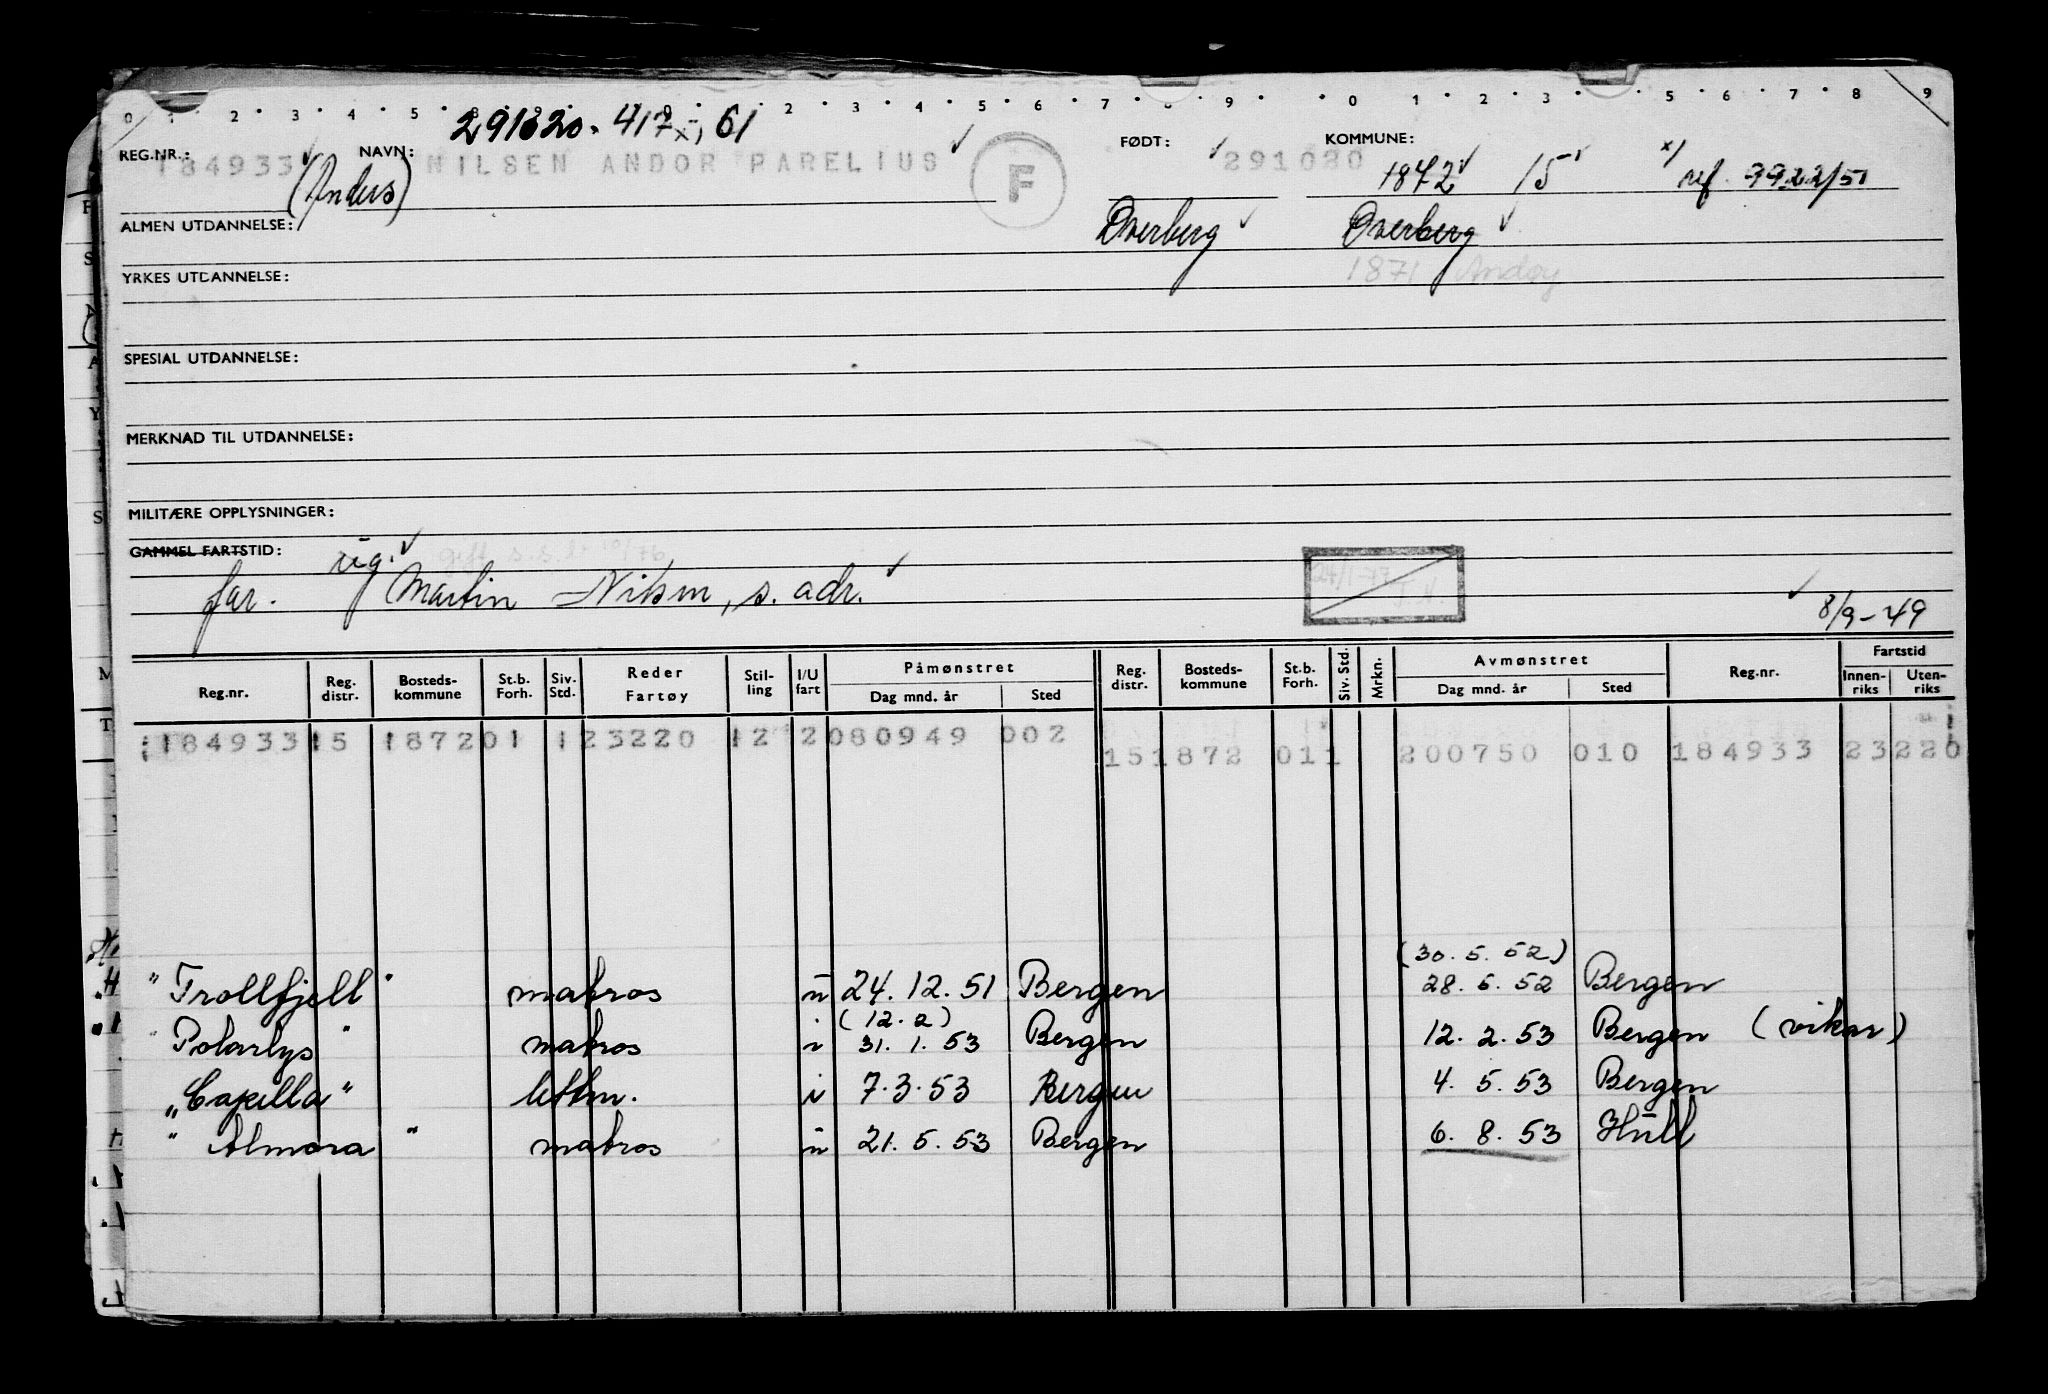 0 1 2 3 4 5 2 3 4 5 6 7 8 9 0 1 2 3 5 6 7 8 9
291020. 417 x-, 61
REG.NR.: 184933 NAVN: NILSEN ANDOR PARELIUS F FØDT: 291020 KOMMUNE: 1872 15 x) ref. 3322/51
(Anders)
ALMEN UTDANNELSE: Dverberg Dverberg
YRKES UTDANNELSE: 1871 Andøy
SPESIAL UTDANNELSE:
MERKNAD TIL UTDANNELSE:
MILITÆRE OPPLYSNINGER:
GAMMEL FARTSTID: ug. gift s.s.b. 10/76
24/1-77
far. Martin Nilsen, s. adr. 8/9-49
Reg.nr. Reg. distr. Bosteds-kommune St.b. Forh. Siv. Std. Reder Fartøy Stil-ling I/U fart Påmønstret Dag mnd. år Sted Reg. distr. Bosteds-kommune St.b. Forh. Siv. Std. Mrkn. Avmønstret Dag mnd. år Sted Reg.nr. Fartstid Innen-riks Uten-riks
184933 15 1872 01 1 23220 12 2 080949 002 15 1872 01 1 200750 010 184933 23220
(30. 5. 52)
"Trollfjell" matros u 24. 12. 51 Bergen 28. 5. 52 Bergen
(12. 2)
"Polarlys" matros i 31. 1. 53 Bergen 12. 2. 53 Bergen (vikar)
"Capella" lettm. i 7. 3. 53 Bergen 4. 5. 53 Bergen
"Almora" matros u 21. 5. 53 Bergen 6. 8. 53 Hull